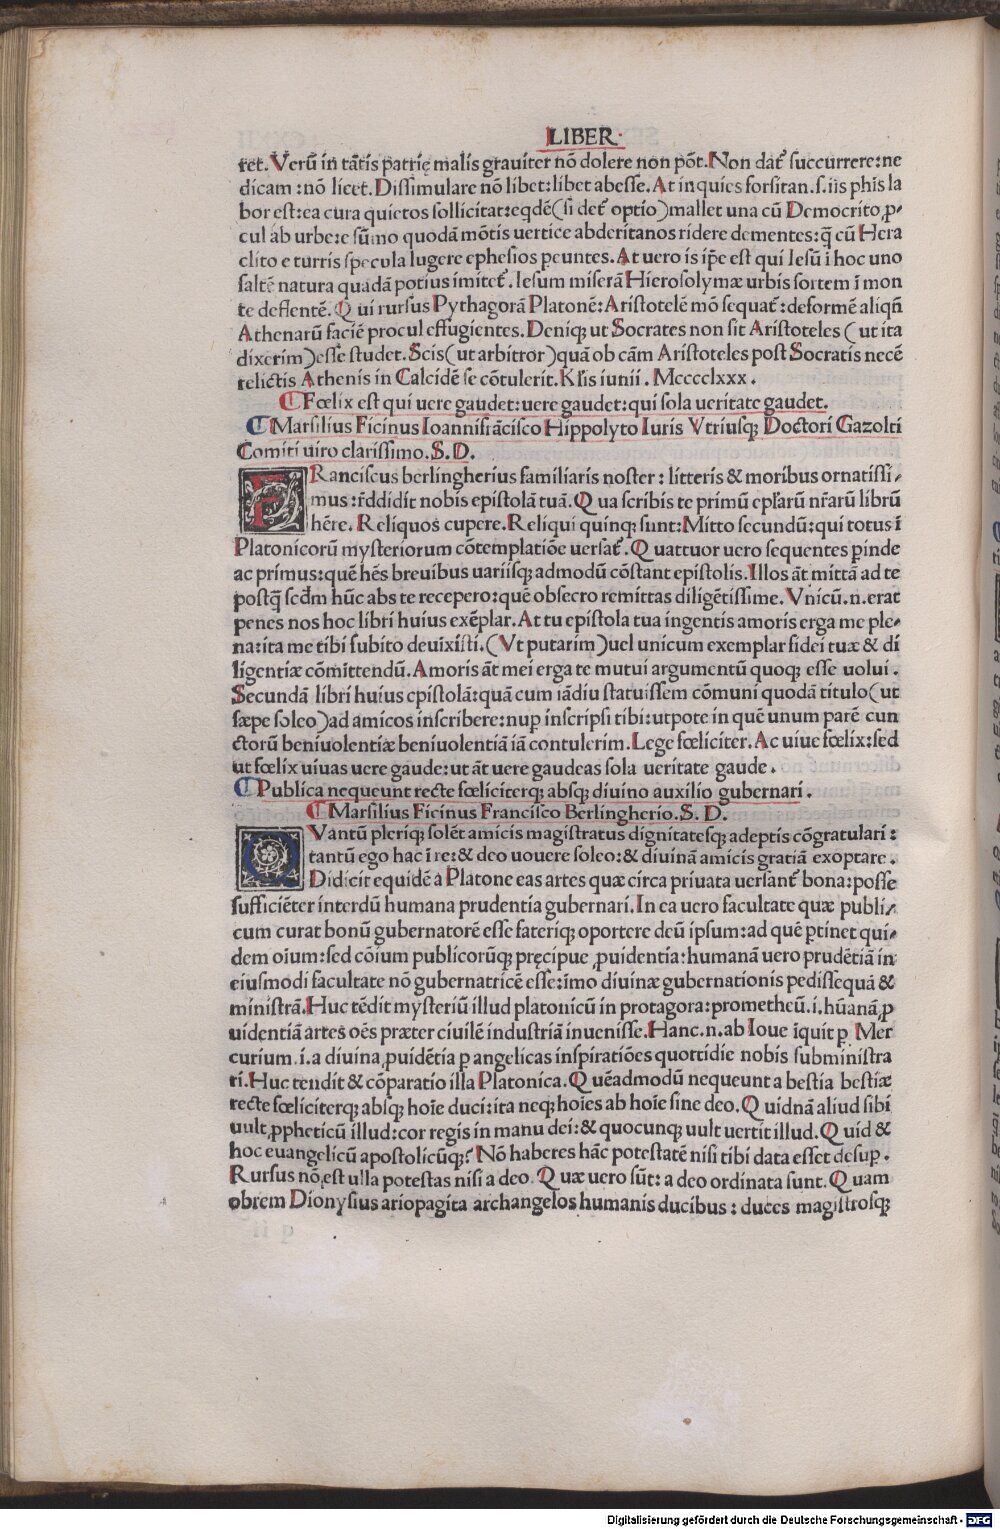 LIBER
ret. Verũ in tãtis patrię malis grauiter nõ dolere non põt. Non dat᷑ succurrere: ne
dicam: nõ licet. Dissimulare nõ libet: libet abesse. At inquies forsitan. s. iis phis la
bor est: ea cura quietos sollicitat: eqdẽ (si det᷑ optio) mallet una cũ Democrito ꝓ⸗
cul ab urbe: e sũmo quodã mõtis uertice abderitanos ridere dementes: q̃ cũ Hera
clito e turris specula lugere ephesios peuntes. At uero is ip̃e est qui Iesũ ĩ hoc uno
saltẽ natura quadã potius imitet᷑. Iesum miserã Hierosolymæ urbis sortem ĩ mon
te deflentẽ. Qui rursus Pythagorã Platonẽ: Aristotelẽ mõ sequat᷑: deformẽ aliqñ
Athenarũ faciẽ procul effugientes. Deniqꝫ ut Socrates non sit Aristoteles (ut ita
dixerim) esse studet. Scis (ut arbitror) quã ob cãm Aristoteles post Socratis necẽ
relictis Athenis in Calcidẽ se cõtulerit. Kl̃is iunii. Mcccclxxx.
⸿ Fœlix est qui uere gaudet: uere gaudet: qui sola ueritate gaudet.
⸿ Marsilius Ficinus Ioannifrãcisco Hippolyto Iuris Vtriusqꝫ Doctori Gazolti
Comiti uiro clarissimo. S. D.
FRanciscus berlingherius familiaris noster: litteris & moribus ornatissi⸗
mus: r̃ddidit nobis epistolã tuã. Qua scribis te primũ epl̃arũ nr̃arũ librũ
hẽre. Reliquos cupere. Reliqui quinqꝫ sunt: Mitto secundũ: qui totus ĩ
Platonicorũ mysteriorum cõtemplatiõe uersat᷑. Quattuor uero sequentes ꝑinde
ac primus: quẽ hẽs breuibus uariisqꝫ admodũ cõstant epistolis. Illos ãt mittã ad te
postq̃ scd̃m hũc abs te recepero: quẽ obsecro remittas diligẽtissime. Vnicũ. n. erat
penes nos hoc libri huius exẽplar. At tu epistola tua ingentis amoris erga me ple⸗
na: ita me tibi subito deuixisti. (Vt putarim) uel unicum exemplar fidei tuæ & di
ligentiæ cõmittendũ. Amoris ãt mei erga te mutui argumentũ quoqꝫ esse uolui.
Secundã libri huius epistolã: quã cum iãdiu statuissem cõmuni quodã titulo (ut
sæpe soleo) ad amicos inscribere: nuꝑ inscripsi tibi: utpote in quẽ unum parẽ cun
ctorũ beniuolentiæ beniuolentiã iã contulerim. Lege fœliciter. Ac uiue fœlix: sed
ut fœlix uiuas uere gaude: ut ãt uere gaudeas sola ueritate gaude.
⸿ Publica nequeunt recte fœliciterqꝫ absqꝫ diuino auxilio gubernari.
⸿ Marsilius Ficinus Francisco Berlingherio. S. D.
QVantũ pleriqꝫ solẽt amicis magistratus dignitatesqꝫ adeptis cõgratulari:
tantũ ego hac ĩ re: & deo uouere soleo: & diuinã amicis gratiã exoptare.
Didicit equidẽ a Platone eas artes quæ circa priuata uersant᷑ bona: posse
sufficiẽter interdũ humana prudentia gubernari. In ea uero facultate quæ publi⸗
cum curat bonũ gubernatorẽ esse fateriqꝫ oportere deũ ipsum: ad quẽ ꝑtinet qui⸗
dem oium: sed cõium publicorũqꝫ pręcipue ꝓuidentia: humanã uero prudẽtiã in
eiusmodi facultate nõ gubernatricẽ esse: imo diuinæ gubernationis pedissequã &
ministrã. Huc tẽdit mysteriũ illud platonicũ in protagora: prometheũ. i. hũanã ꝓ
uidentiã artes oẽs præter ciuilẽ industriã inuenisse. Hanc. n. ab Ioue ĩquit ꝑ Mer
curium. i. a diuina ꝓuidẽtia ꝑ angelicas inspiratiões quottidie nobis subministra
ri. Huc tendit & cõparatio illa Platonica. Quẽadmodũ nequeunt a bestia bestiæ
recte fœliciterqꝫ absqꝫ hoĩe duci: ita neqꝫ hoĩes ab hoĩe sine deo. Quidnã aliud sibi
uult ꝓpheticũ illud: cor regis in manu dei: & quocunqꝫ uult uertit illud. Quid &
hoc euangelicũ apostolicũqꝫ? Nõ haberes hãc potestatẽ nisi tibi data esset desuꝑ.
Rursus nõ est ulla potestas nisi a deo. Quæ uero sũt: a deo ordinata sunt. Quam
obrem Dionysius ariopagita archangelos humanis ducibus: duces magistrosqꝫ
Digitalisierung gefördert durch die Deutsche Forschungsgemeinschaft - DFG